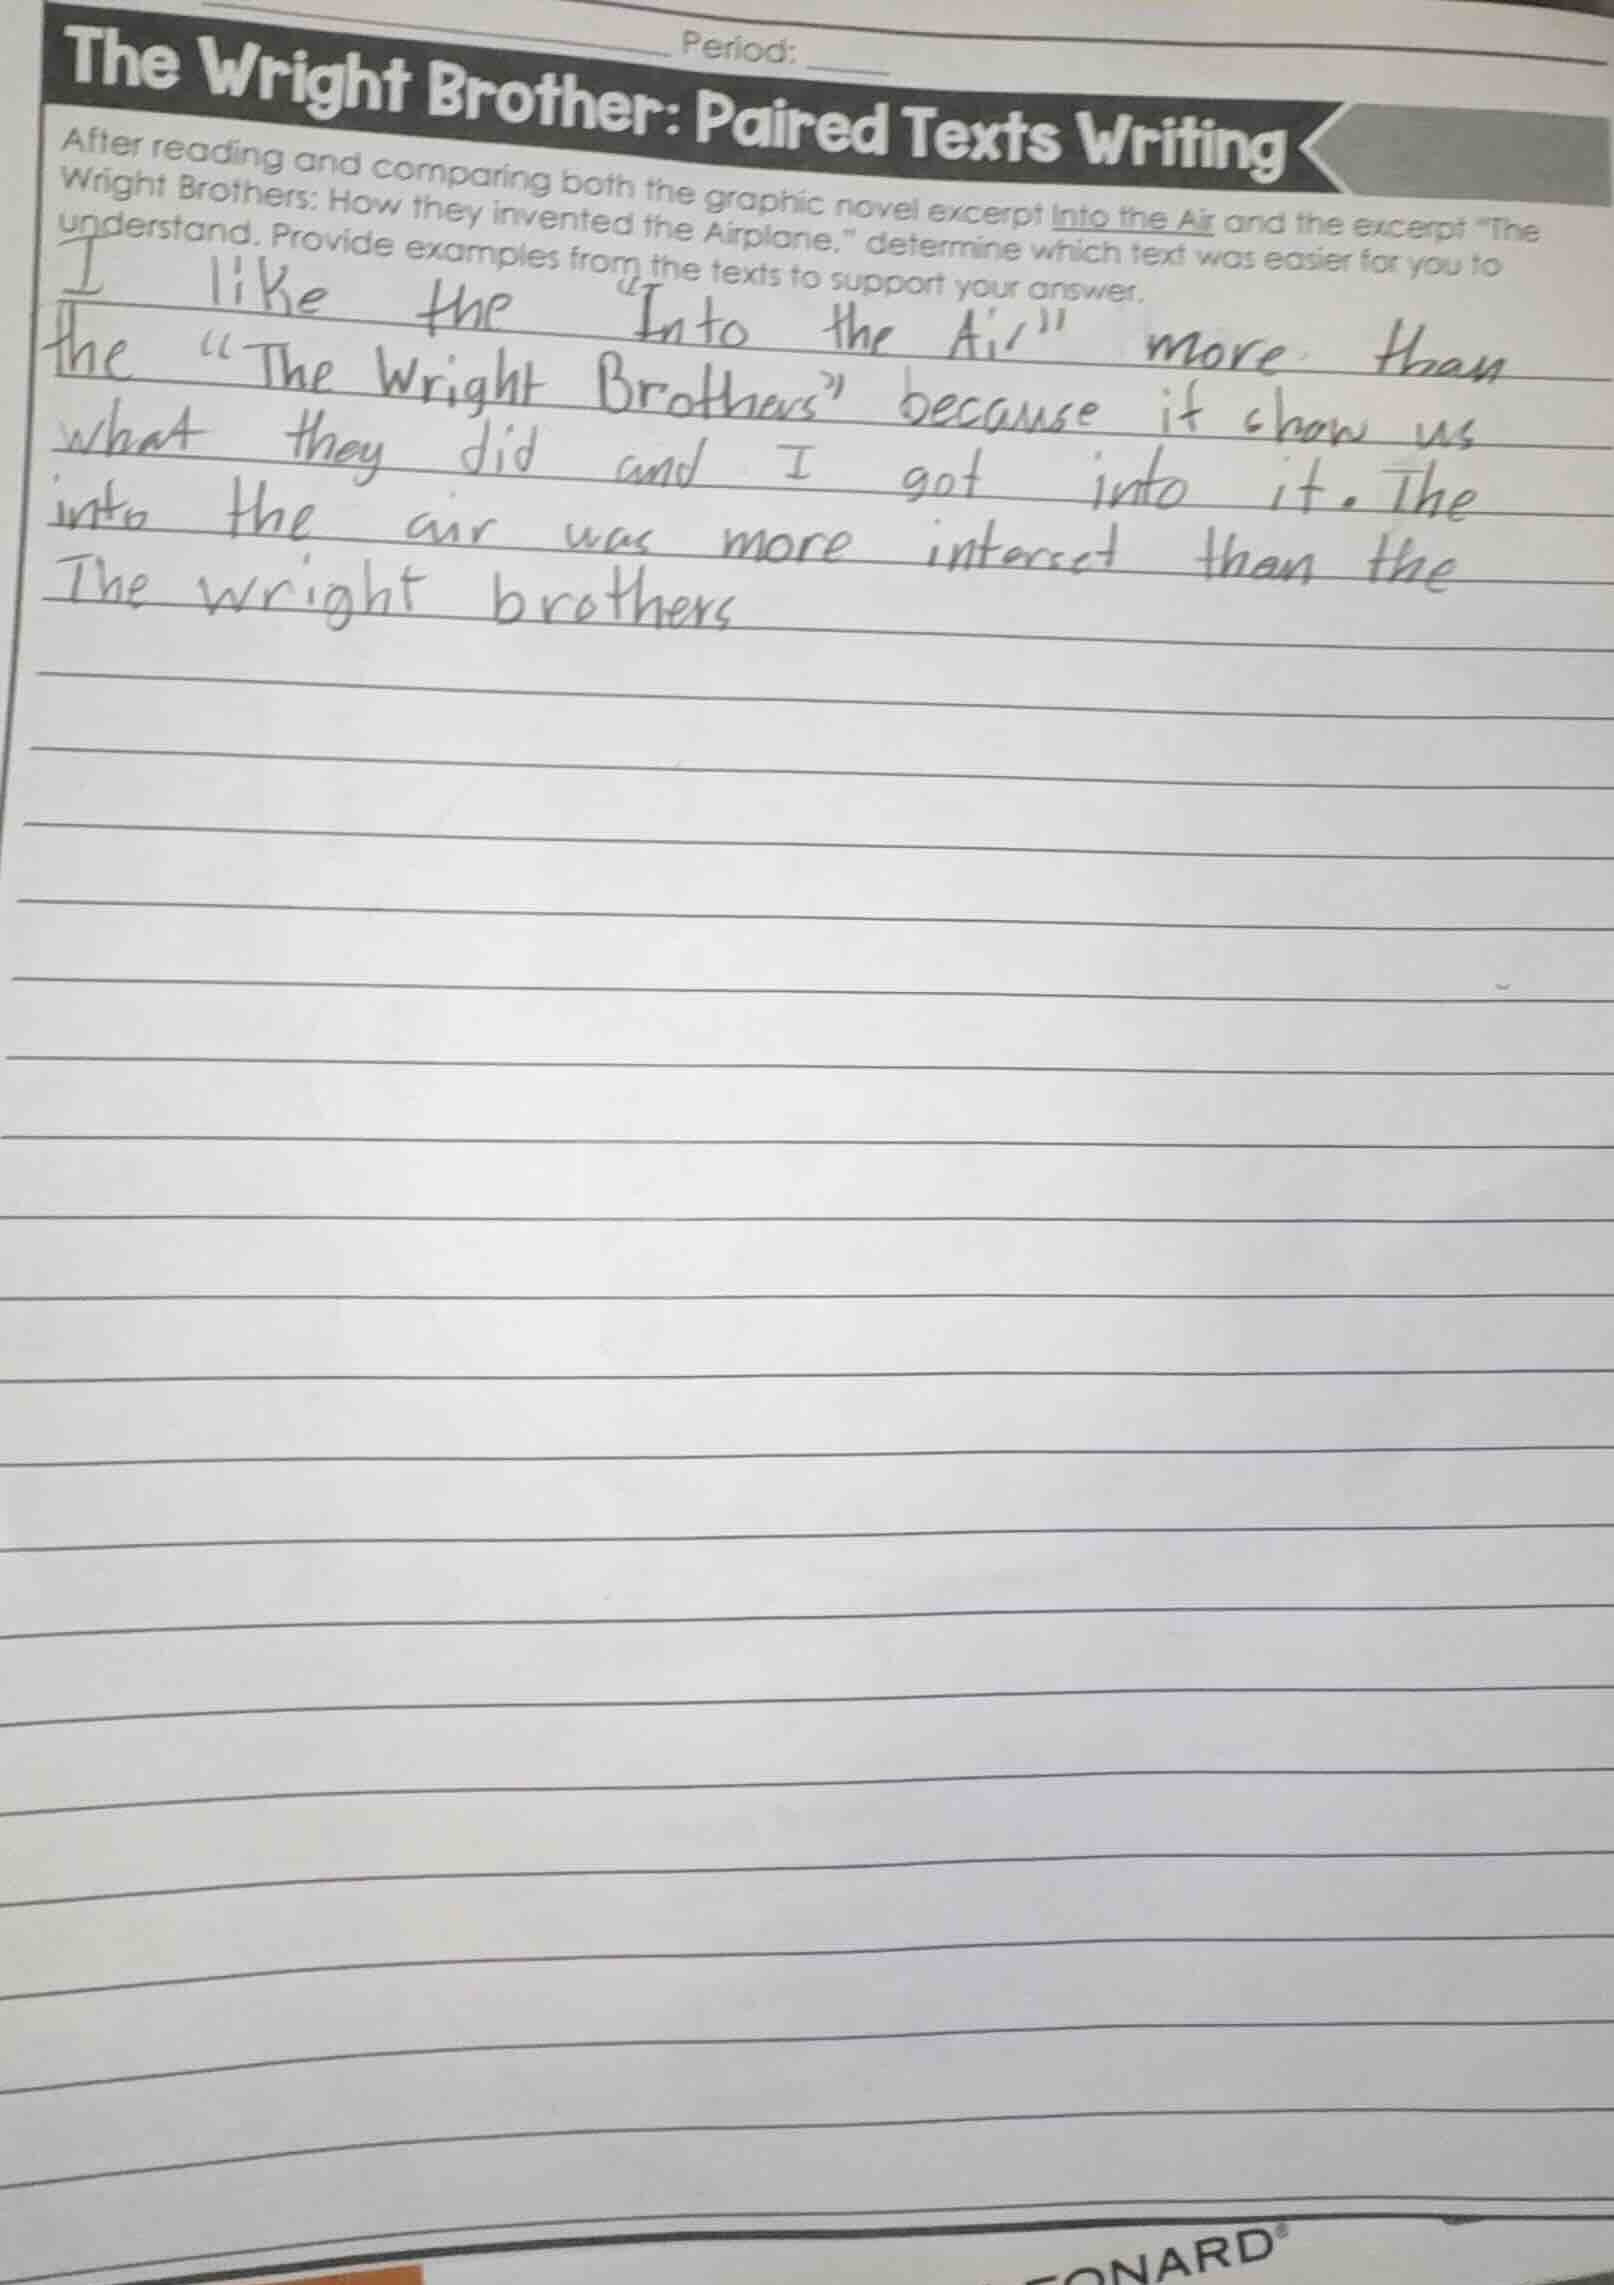 Period:
The Wright Brother: Paired Texts Writing
After reading and comparing both the graphic novel excerpt Into the Air and the excerpt "The
Wright Brothers: How they invented the Airplane," determine which text was easier for you to
understand. Provide examples from the texts to support your answer.
I like the "Into the Air" more than
the "The Wright Brothers" because it show us
what they did and I got into it. The
into the air was more interset than the
The wright brothers
EONARD®